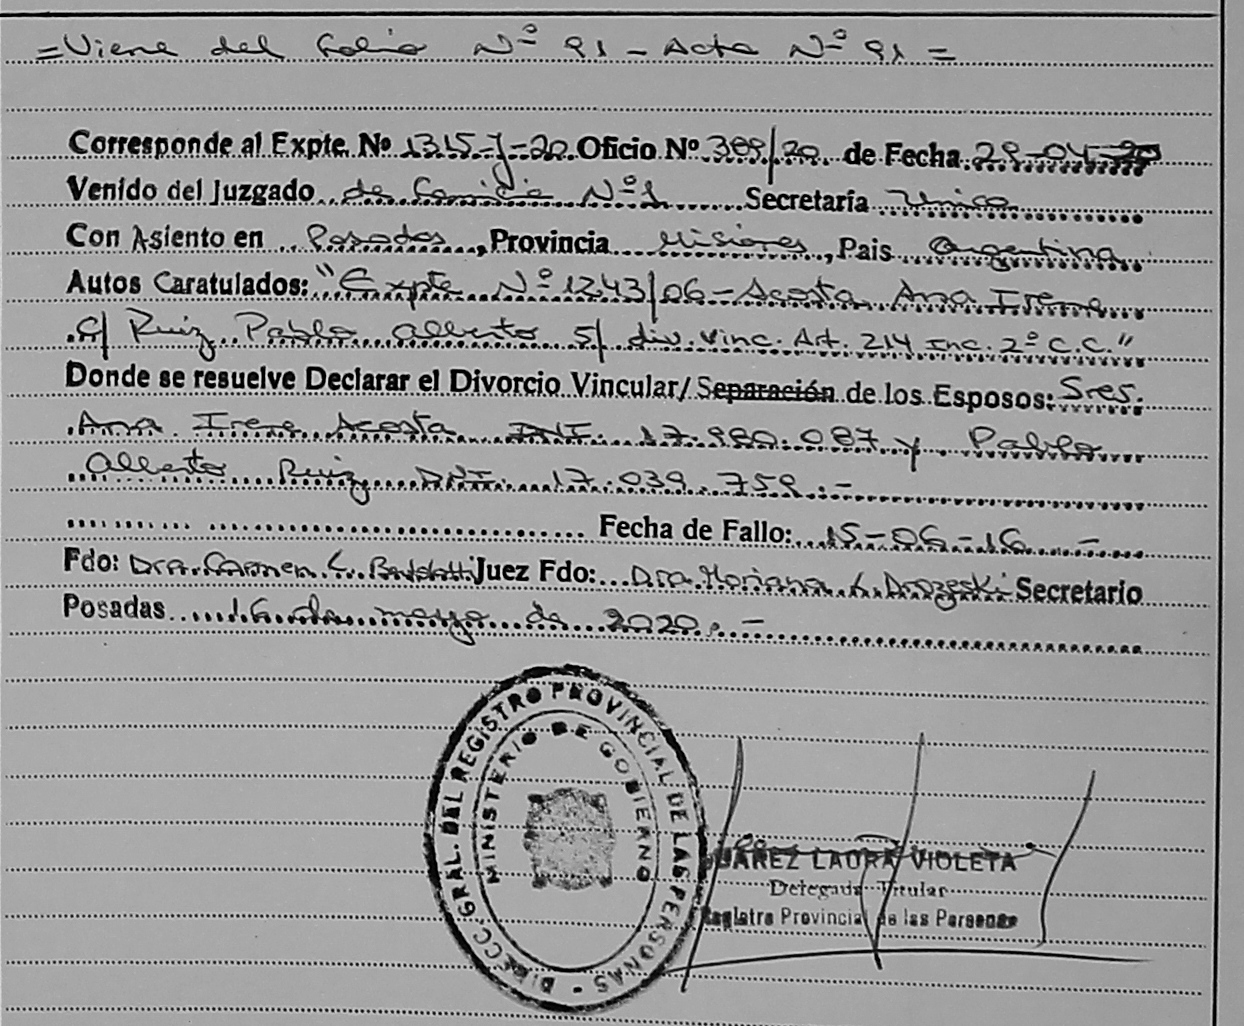 =Viene del Folio Nº 91 - Acta Nº 91 =
Corresponde al Expte. Nº 1315-J-20 Oficio Nº 389/20. de Fecha 29-04-20
Venido del Juzgado de Familia Nº1 Secretaría Unica
Con Asiento en Posadas, Provincia Misiones, Pais Argentina
Autos Caratulados: "Expte Nº 1243/06-Acosta Ana Irene
c/ Ruiz Pablo Alberto s/ div. vinc. Art. 214 inc. 2º C.C."
Donde se resuelve Declarar el Divorcio Vincular/Separación de los Esposos: Sres.
Ana Irene Acosta DNI. 17.980.087 y Pablo
Alberto Ruiz DNI. 17.039.759.-
Fecha de Fallo: 15-06-16 -
Fdo: Dra. Carmen Juez Fdo: Dra. Mariana Secretario
Posadas 16 de mayo de 2020.-
DIRECC. GRAL. DEL REGISTRO PROVINCIAL DE LAS PERSONAS -
MINISTERIO DE GOBIERNO
JUAREZ LAURA VIOLETA
Delegada Titular
Registro Provincial de las Personas